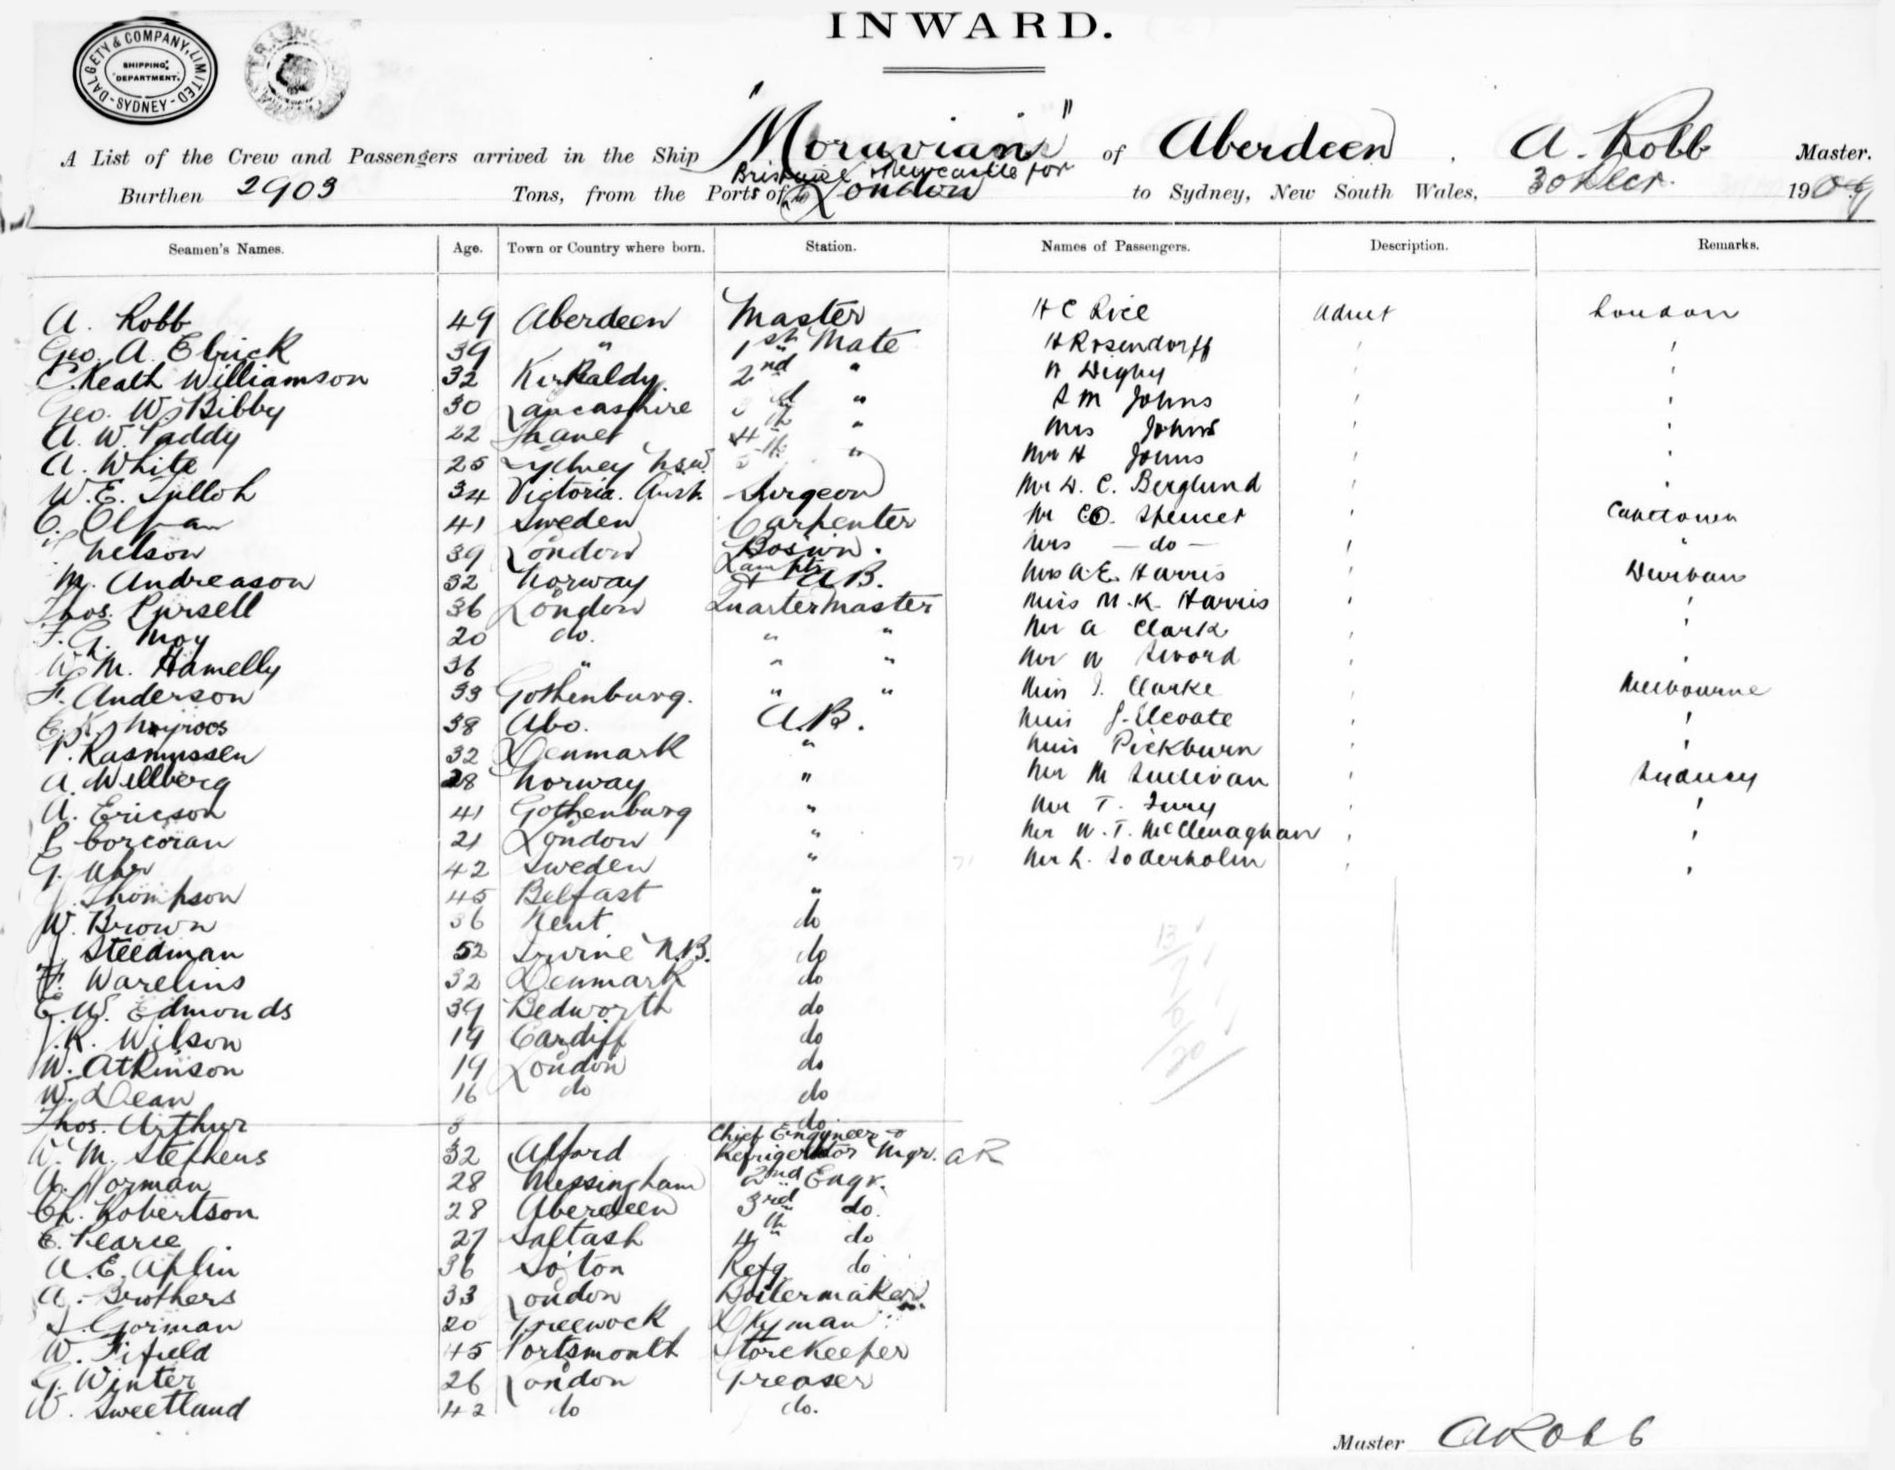 INWARD.
DALGETY & COMPANY, LIMITED
SHIPPING DEPARTMENT.
SYDNEY
A List of the Crew and Passengers arrived in the Ship "Moravian" of Aberdeen, A. Robb Master.
Brisbane & Newcastle for
Burthen 2903 Tons, from the Ports of London to Sydney, New South Wales, 30 Decr. 190
Seamen's Names. Age. Town or Country where born. Station. Names of Passengers. Description. Remarks.
A. Robb 49 Aberdeen Master H C Rice Adult London
Geo. A. Elrick 39 " 1st Mate H Rosendorff ' '
C. Keath Williamson 32 Kirkaldy. 2nd " W Digby ' '
Geo. W. Bibby 30 Lancashire 3d " S M Johns ' '
A. W. Paddy 22 Thanet 4th " Mrs Johns ' '
A. White 25 Sydney N.S.W. 5th " Mr H Johns ' '
W. E. Tulloh 34 Victoria. Aust. Surgeon Mr D. C. Berglund ' '
C. 41 Sweden Carpenter Mr Spencer ' Capetown
Nelson 39 London Bos'wn. Mrs — do — ' "
M. Andreason 32 Norway Lamps & A.B. Mrs A. E. Harris ' Durban
Thos. Pursell 36 London Quartermaster Miss M. K. Harris ' '
F. G. Moy 20 do. " " Mr A Clark ' '
W. M. Hamelly 36 " " " Mr W Sword ' '
F. Anderson 33 Gothenburg. " " Miss J. Clarke ' Melbourne
E. K. 38 Abo. A.B. Miss ' '
P. Rasmussen 32 Denmark " Miss Pickburn ' '
A. Willberg 28 Norway " Mr M Sullivan ' Sydney
A. Ericson 41 Gothenburg " Mr T. Fury ' '
P. Corcoran 21 London " Mr W. T. McClenaghan ' '
G. 42 Sweden " Mr L. Soderholm ' '
J. Thompson 45 Belfast "
W. Brown 36 Kent do
J. Steedman 52 Irvine N.B. do
F. Warelins 32 Denmark do
E. W. Edmonds 39 Bedworth do
J. K. Wilson 19 Cardiff do
W. Atkinson 19 London do
W. Dean 16 do do
Thos. Arthur do
W. M. Stephens 32 Alford Chief Engineer & Refrigerator Mgr. AR
A. Norman 28 Messingham 2nd Engr.
Ch. Robertson 28 Aberdeen 3rd do.
E. Pearce 27 Saltash 4th do
A. E. Aplin 36 So'ton Refg do
A. Brothers 33 London Boilermaker
S. Gorman 20 Greenock Dkyman
W. Fifield 45 Portsmouth Storekeeper
G. Winter 26 London Greaser
W. Sweetland 42 do do.
13
7
20
Master A Robb